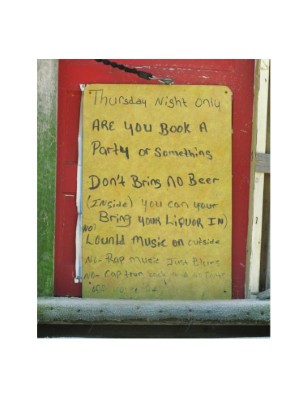 Thursday Night Only
ARE YOU BOOK A
Party or Something
Don't Bring NO Beer
(INSide) you can your
Bring your Liquor IN)
NO)
Lound Music on outside
NO- Rap Music Just Blues
NO- Cap